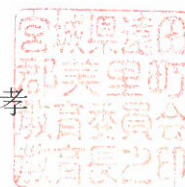 孝
宮城県遠田
郡美里町
教育委員会
教育長之印